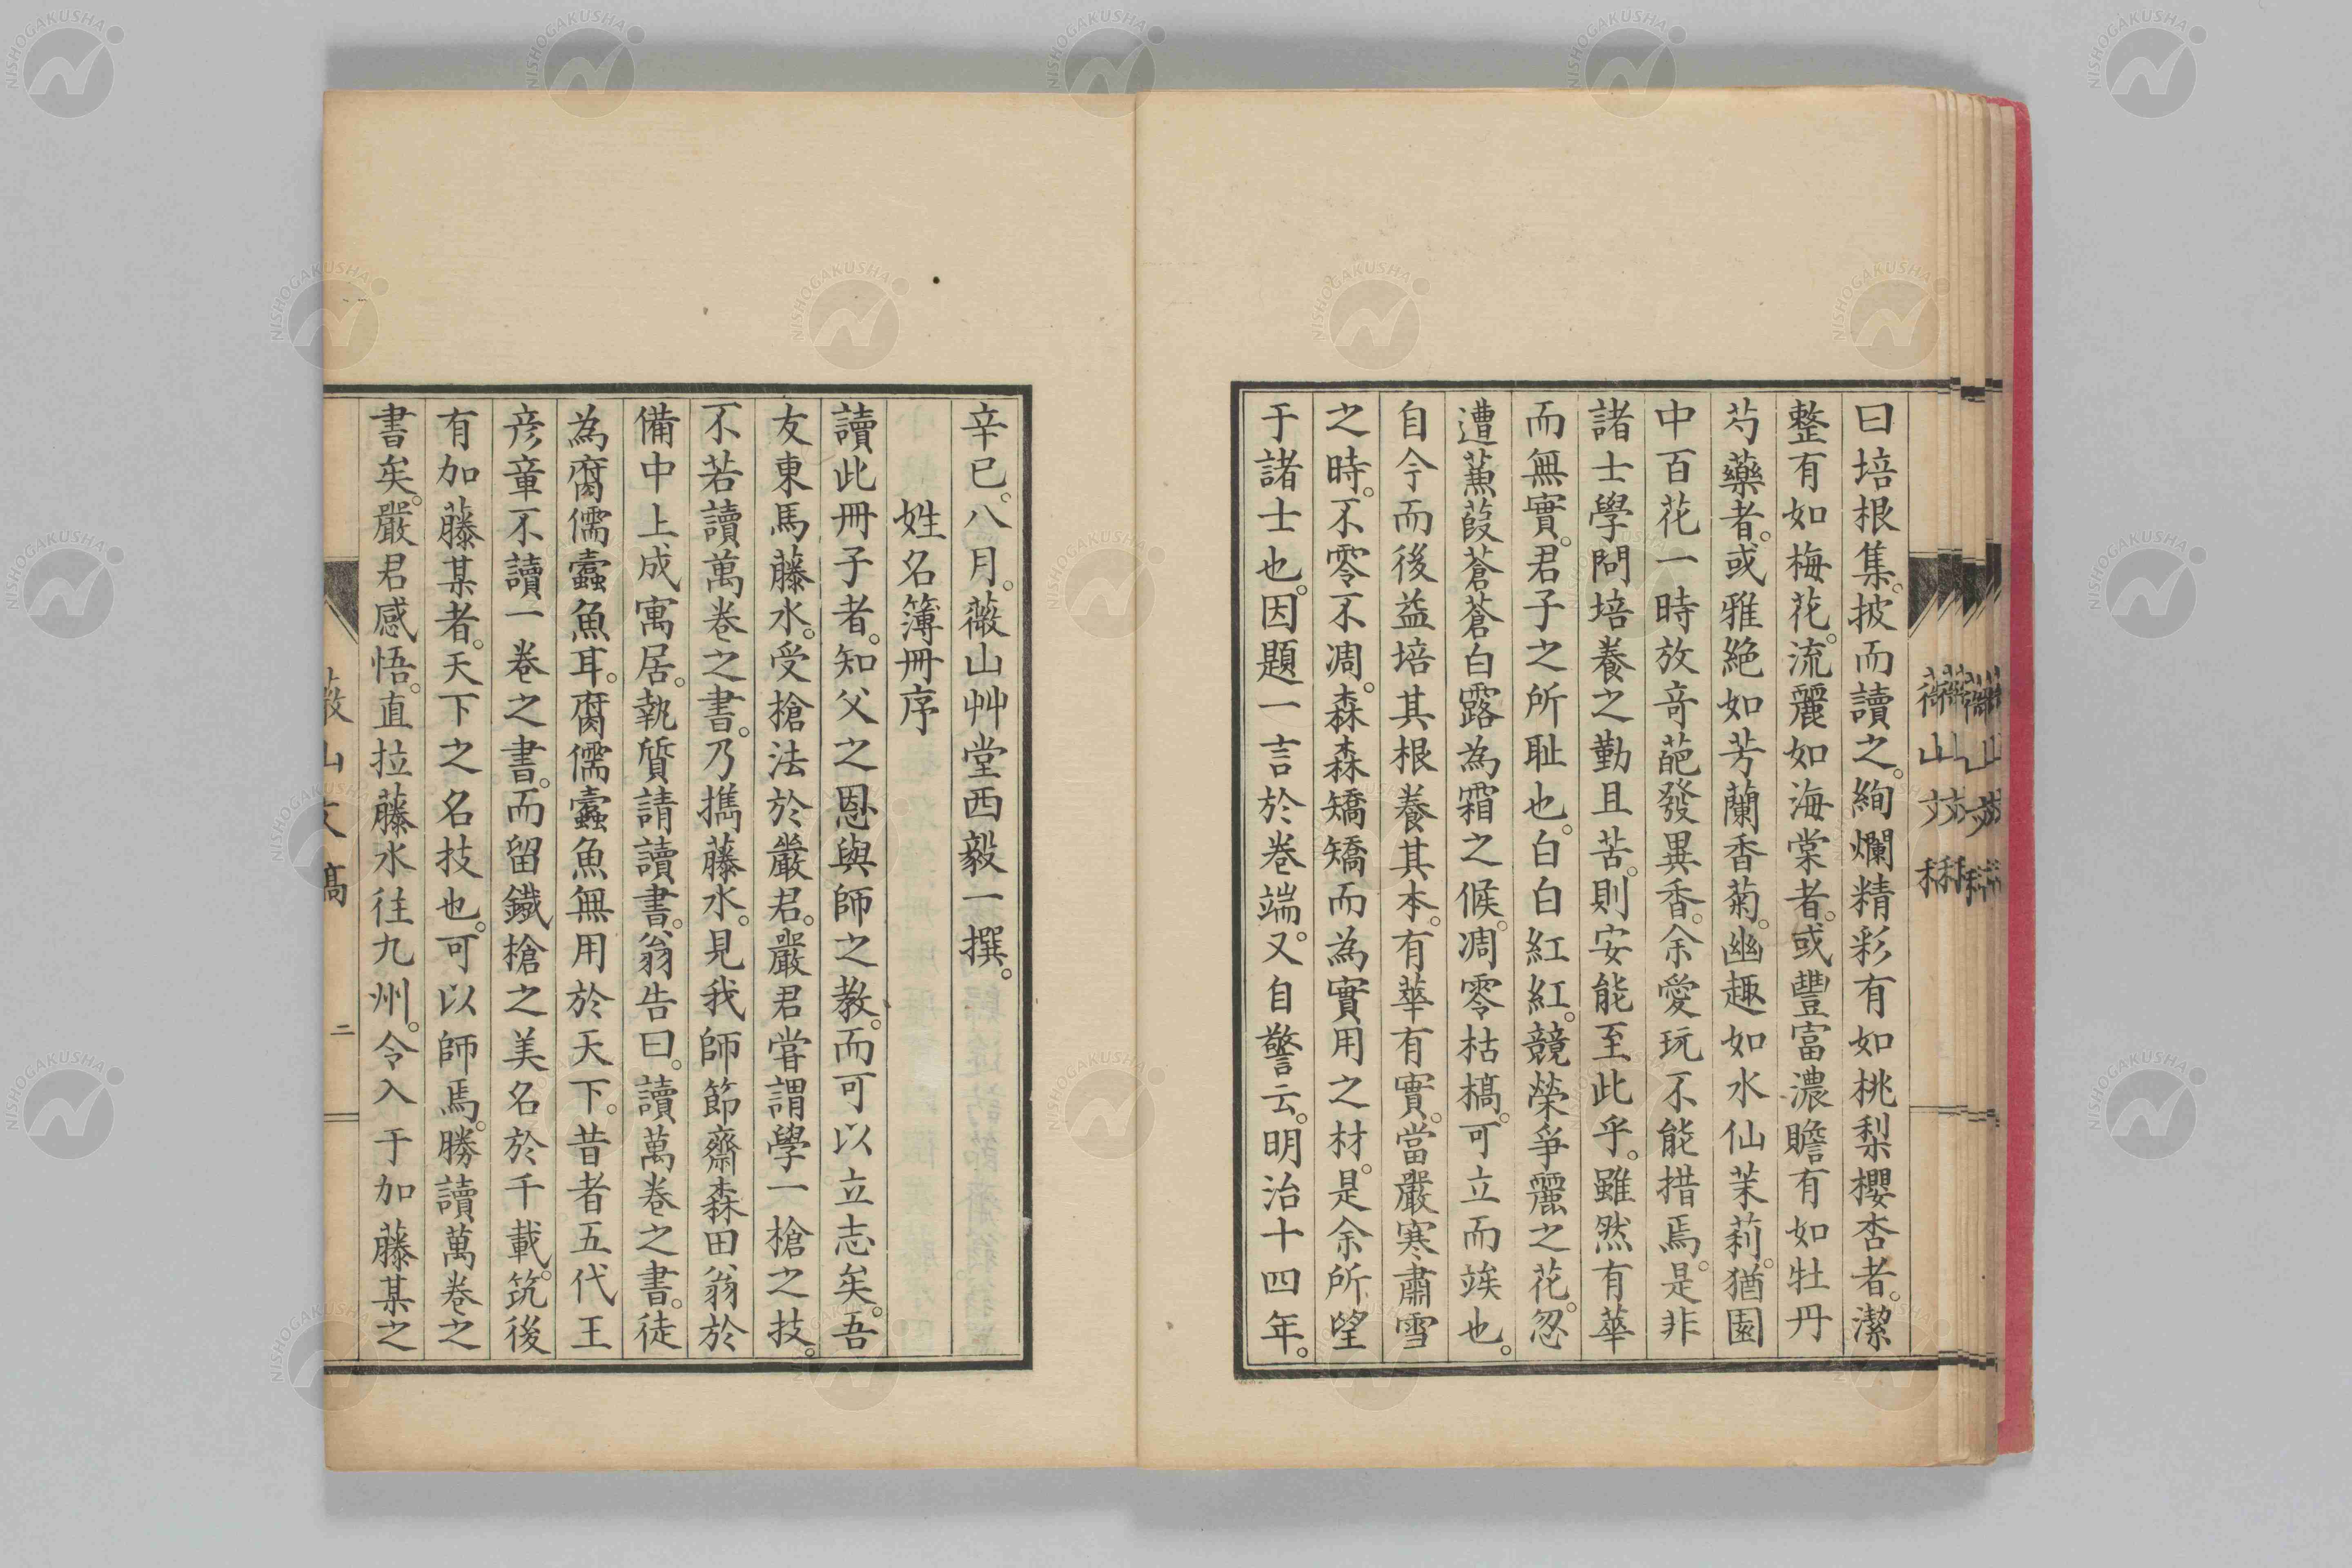 曰培根集。披而讀之。絢爛精彩有如桃梨櫻杏者。潔
整有如梅花。流麗如海棠者。或豐富濃贍有如牡丹
芍藥者。或雅絶如芳蘭香菊。幽趣如水仙茉莉。猶園
中百花一時放奇葩發異香。余愛玩不能措焉。是非
諸士學問培養之勤且苦。則安能至此乎。雖然有華
而無實。君子之所恥也。白白紅紅。競榮爭麗之花。忽
遭蒹葭蒼蒼白露為霜之候。凋零枯槁。可立而竢也。
自今而後益培其根養其本。有華有實。當嚴寒肅雪
之時。不零不凋。森森矯矯而為實用之材。是余所望
于諸士也。因題一言於卷端。又自警云。明治十四年。
辛巳。八月。薇山艸堂西毅一撰。
姓名簿冊序
讀此冊子者。知父之恩與師之教。而可以立志矣。吾
友東馬藤水。受槍法於嚴君。嚴君甞謂學一槍之技。
不若讀萬卷之書。乃携藤水。見我師節齋森田翁於
備中上成寓居。執質請讀書。翁告曰。讀萬卷之書。徒
為腐儒蠹魚耳。腐儒蠹魚無用於天下。昔者五代王
彦章不讀一卷之書。而留鐵槍之美名於千載。筑後
有加藤某者。天下之名技也。可以師焉。勝讀萬卷之
書矣。嚴君感悟。直拉藤水徃九州。令入于加藤某之
薇山文稿
二
NISHOGAKUSHA